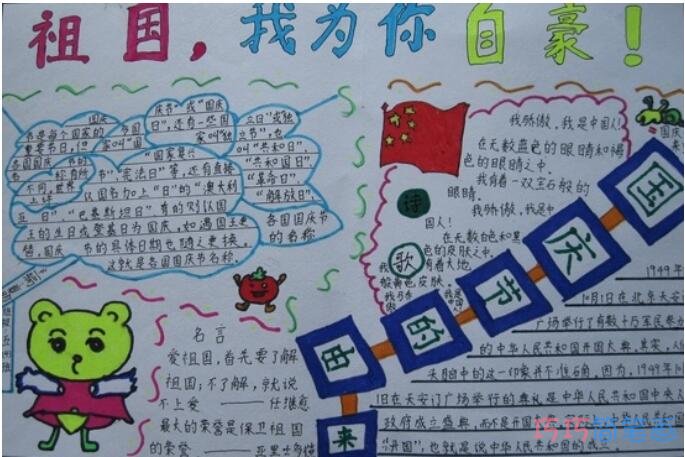 祖国，我为你自豪！
国庆
节是每个国家的
重要节日，但
各国国庆
不同。世界
上许
庆节"或"国庆
日"，还有一些国
家叫"独
立日"或"独
立节"，也
叫"共和日"，
"共和国日"，
"革命日"，
"解放日"，
各国国庆节
的名称
"国家复兴
节"，"宪法日"等，还有直接
以国名加上"日"的"澳大利
亚日"，"巴基斯坦日"，有的则以国
王的生日或登基日为国庆，如遇国王更
替，国庆节的具体日期也随之更换。
这就是各国国庆节名称。
名言
爱祖国，首先要了解
祖国；不了解，就说
不上爱 —— 任继愈
最大的荣誉是保卫祖国
的荣誉。 —— 亚里士多德
诗
歌
我骄傲，我是中国人！
在无数蓝色的眼睛和褐
色的眼睛之中，
我有着一双宝石般的
眼睛。
我骄傲，我是中
国人！
在无数白色和黑
色的皮肤之中，
我有着大地
般黄色皮肤。
国庆节的由来
1949年
10月1日在北京天安门
广场举行了有数十万军民参加
的中华人民共和国开国大典。其实，人们
头脑中的这一印象并不准确。因为，1949年10月
1日在天安门广场举行的典礼是中华人民共和国中央人
政府成立盛典，而不是开国
"开国"，也就是说中华人民共和国的成立
巧巧简笔画